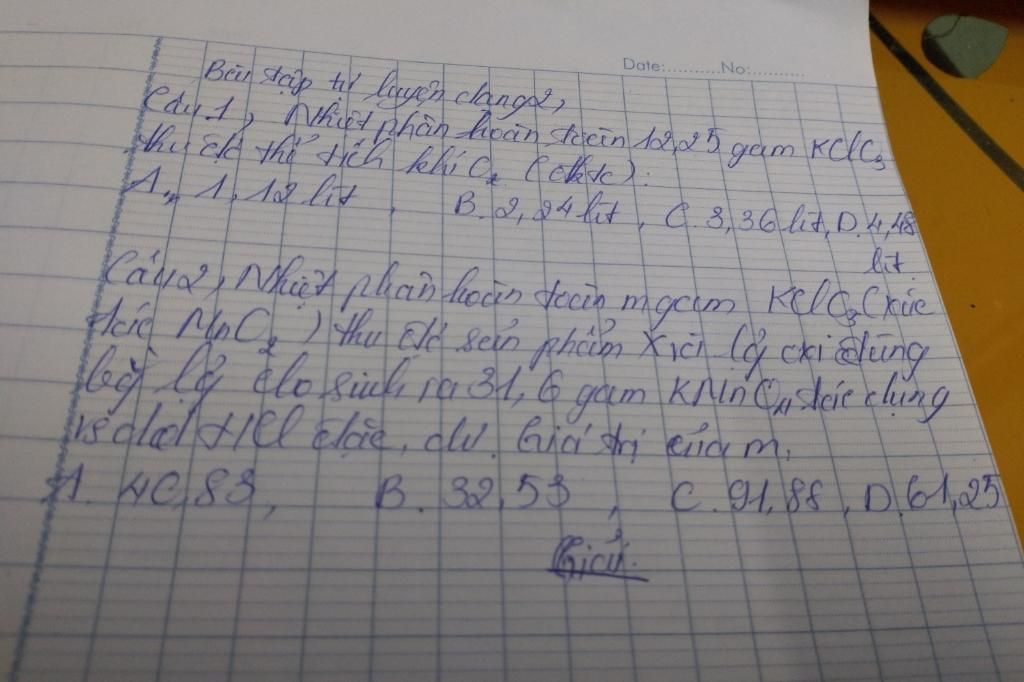 Date:..........No:..........
Bài tập tự luyện dạng 2,
Câu 1, Nhiệt phân hoàn toàn 12,25 gam KClO3
thu đc thể tích khí O2 (đktc):
A, 1,12 lít, B. 2,24 lít, C. 3,36 lít, D. 4,48
lít.
Câu 2, Nhiệt phân hoàn toàn m gam KClO3 (xúc
tác MnO2) thu đc sản phẩm Với lg oxi đúng
bằg lg clo sinh ra 31,6 gam KMnO4 tác dụng
vs dd HCl đặc, dư. Giá trị của m.
A. 40,83, B. 32,53, C. 91,88, D. 61,25
Giải.